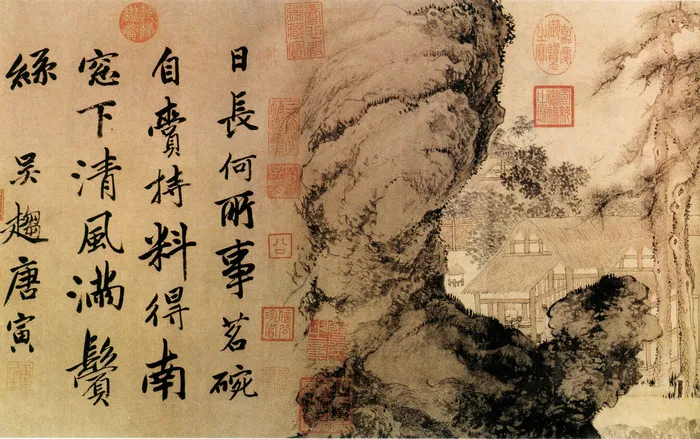 日長何所事茗碗
自賚持料得南
窓下清風滿鬢
絲 吳趨唐寅